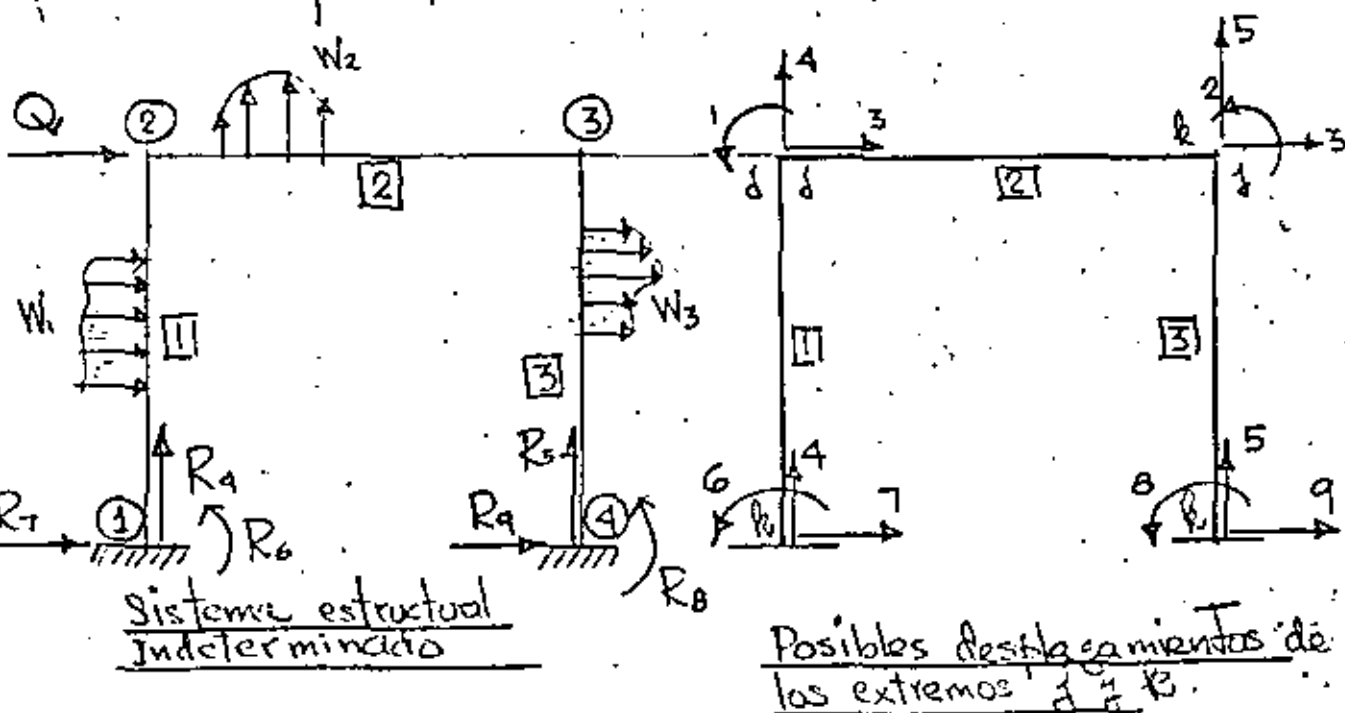 W2
Q
2
3
2
W1
1
W3
3
R4
R5
R7
1
R6
R9
4
R8
Sistema estructual
Indeterminado
4
5
1
3
2
k
3
j
j
2
j
1
3
6
4
7
k
8
5
9
k
Posibles desplazamientos de
los extremos j y k.